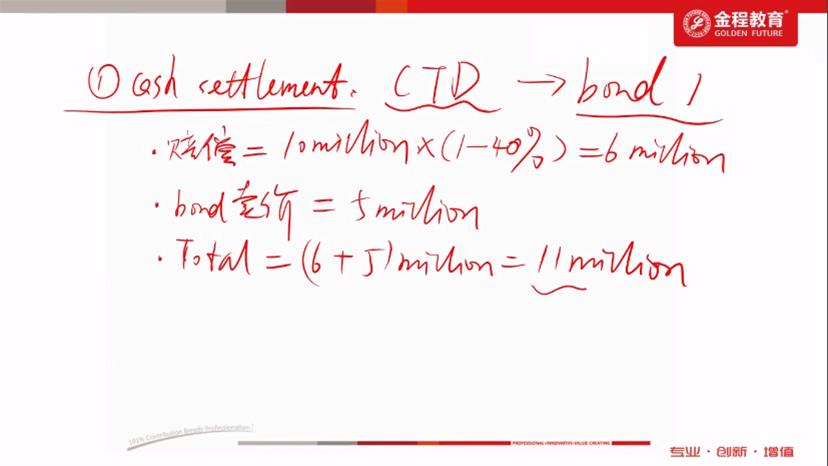 金程教育
GOLDEN FUTURE
① cash settlement. CTD → bond 1
· 赔偿 = 10 million × (1-40%) = 6 million
· bond 卖价 = 5 million
· Total = (6+5) million = 11 million
101% Contribution Breeds Professionalism!
PROFESSIONAL·INNOVATIVE·VALUE CREATING
专业·创新·增值